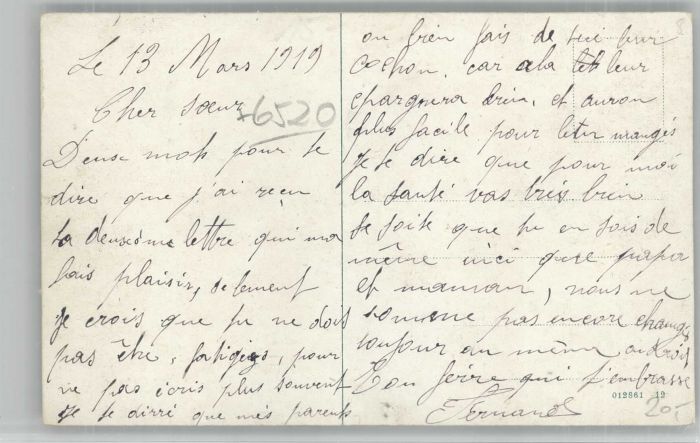 Le 13 Mars 1919
Cher sœur
+6520
Deuse mots pour te
dire que j'ai recu
ta deuxsème lettre qui ma
fais plaisir, selement
je crois que tu ne dois
pas être, fatigégs, pour
ne pas écris plus souvent
je te dirré que més parents
on bien fais de tué leur
cochon, car cela leur
éparguera brin, et auron
plus facile pour mangés
je te dire que pour moi
la santé vas trés brin
Je soite que tu en sois de
même ici que papa
et maman, nous ne
somme pas encore changé
toujour au même androit
Ton frère qui t'embrasse
Fernand
012861 12
20,-